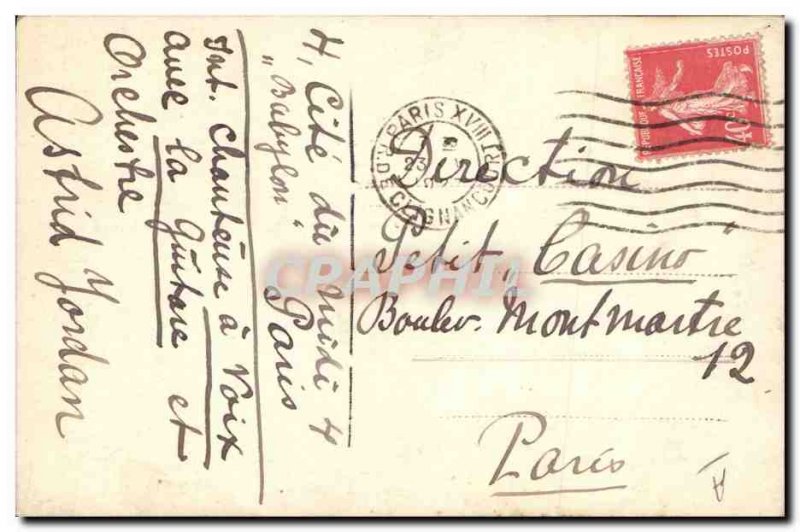 4, Cité du Midi 4
"Babylon" Paris
Int. Chanteuse à Voix
avec la guitare et
Orchestre
Astrid Jordan
Direction
Petit "Casino"
Boulev. Montmartre
12
Paris
PARIS XVIII
R. DE CLIGNANCOURT
23
POSTES
REPUBLIQUE FRANÇAISE
CPAPHIL